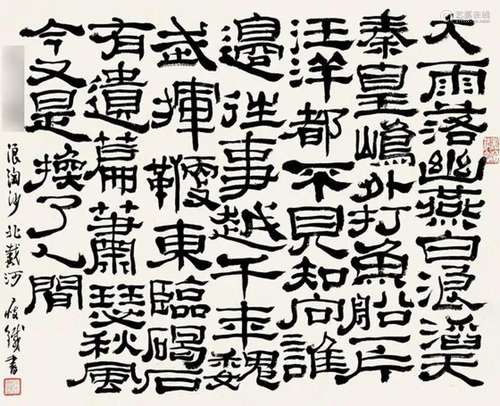 大雨落幽燕白浪滔天
秦皇嶋外打魚船一片
汪洋都不見知向誰
邊往事越千年魏
武揮鞭東臨碣石
有遺篇蕭瑟秋風
今又是換了人間
浪淘沙 北戴河 鐵書